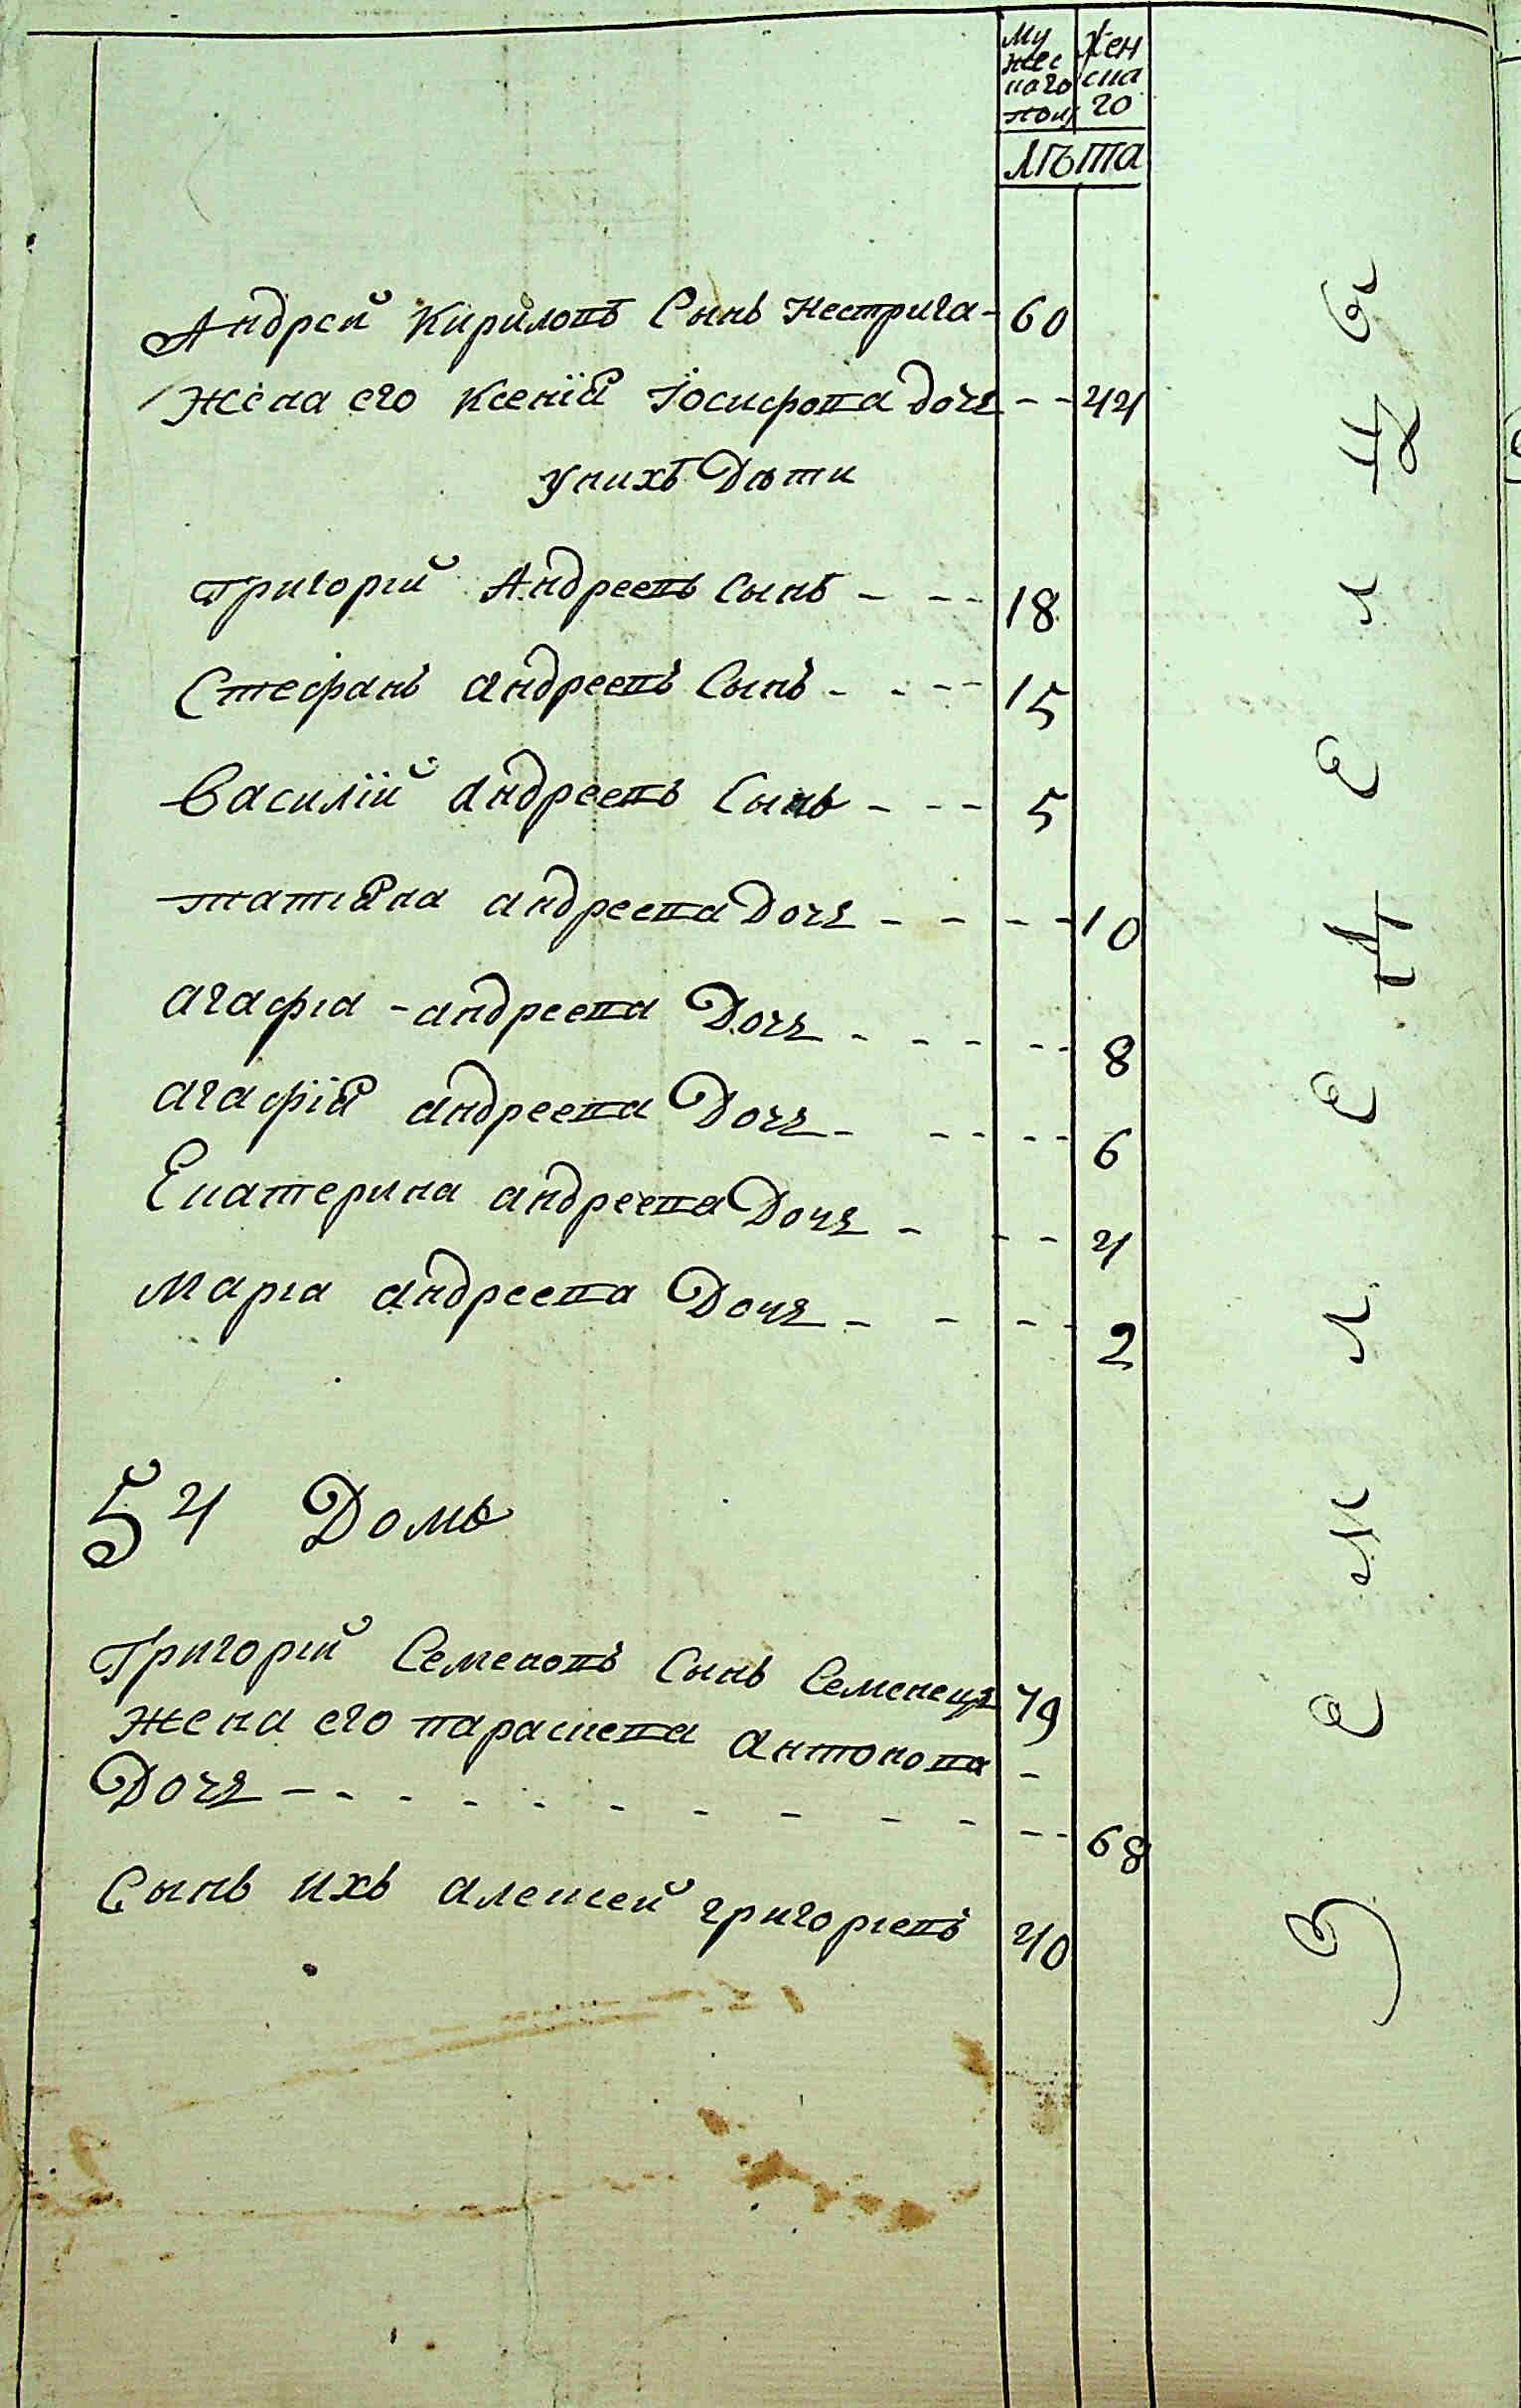 Му Жен
жес ска
каго го
полу
лѣта
Андрей Кириловъ Сынъ Нестрига- 60
Жена его Ксенїя Їосифова дочь - - 44
у нихъ Дѣти
Григорій Андреевъ Сынъ - - - 18
Стефанъ андреевъ Сынъ - - - - 15
Василїй андреевъ Сынъ - - - 5
татіяна андреева Дочь - - - - 10
агафіа - андреева Дочь - - - - - 8
агафїя андреева Дочь - - - - - 6
Екатерина андреева Дочь - - - 4
Маріа андреева Дочь - - - - 2
54 Домъ
Григорій Семеновъ Сынъ Семенецъ 79
Жена его параскева антонова -
Дочь - - - - - - - - - - - 68
Сынъ ихъ алексей григоріевъ 40